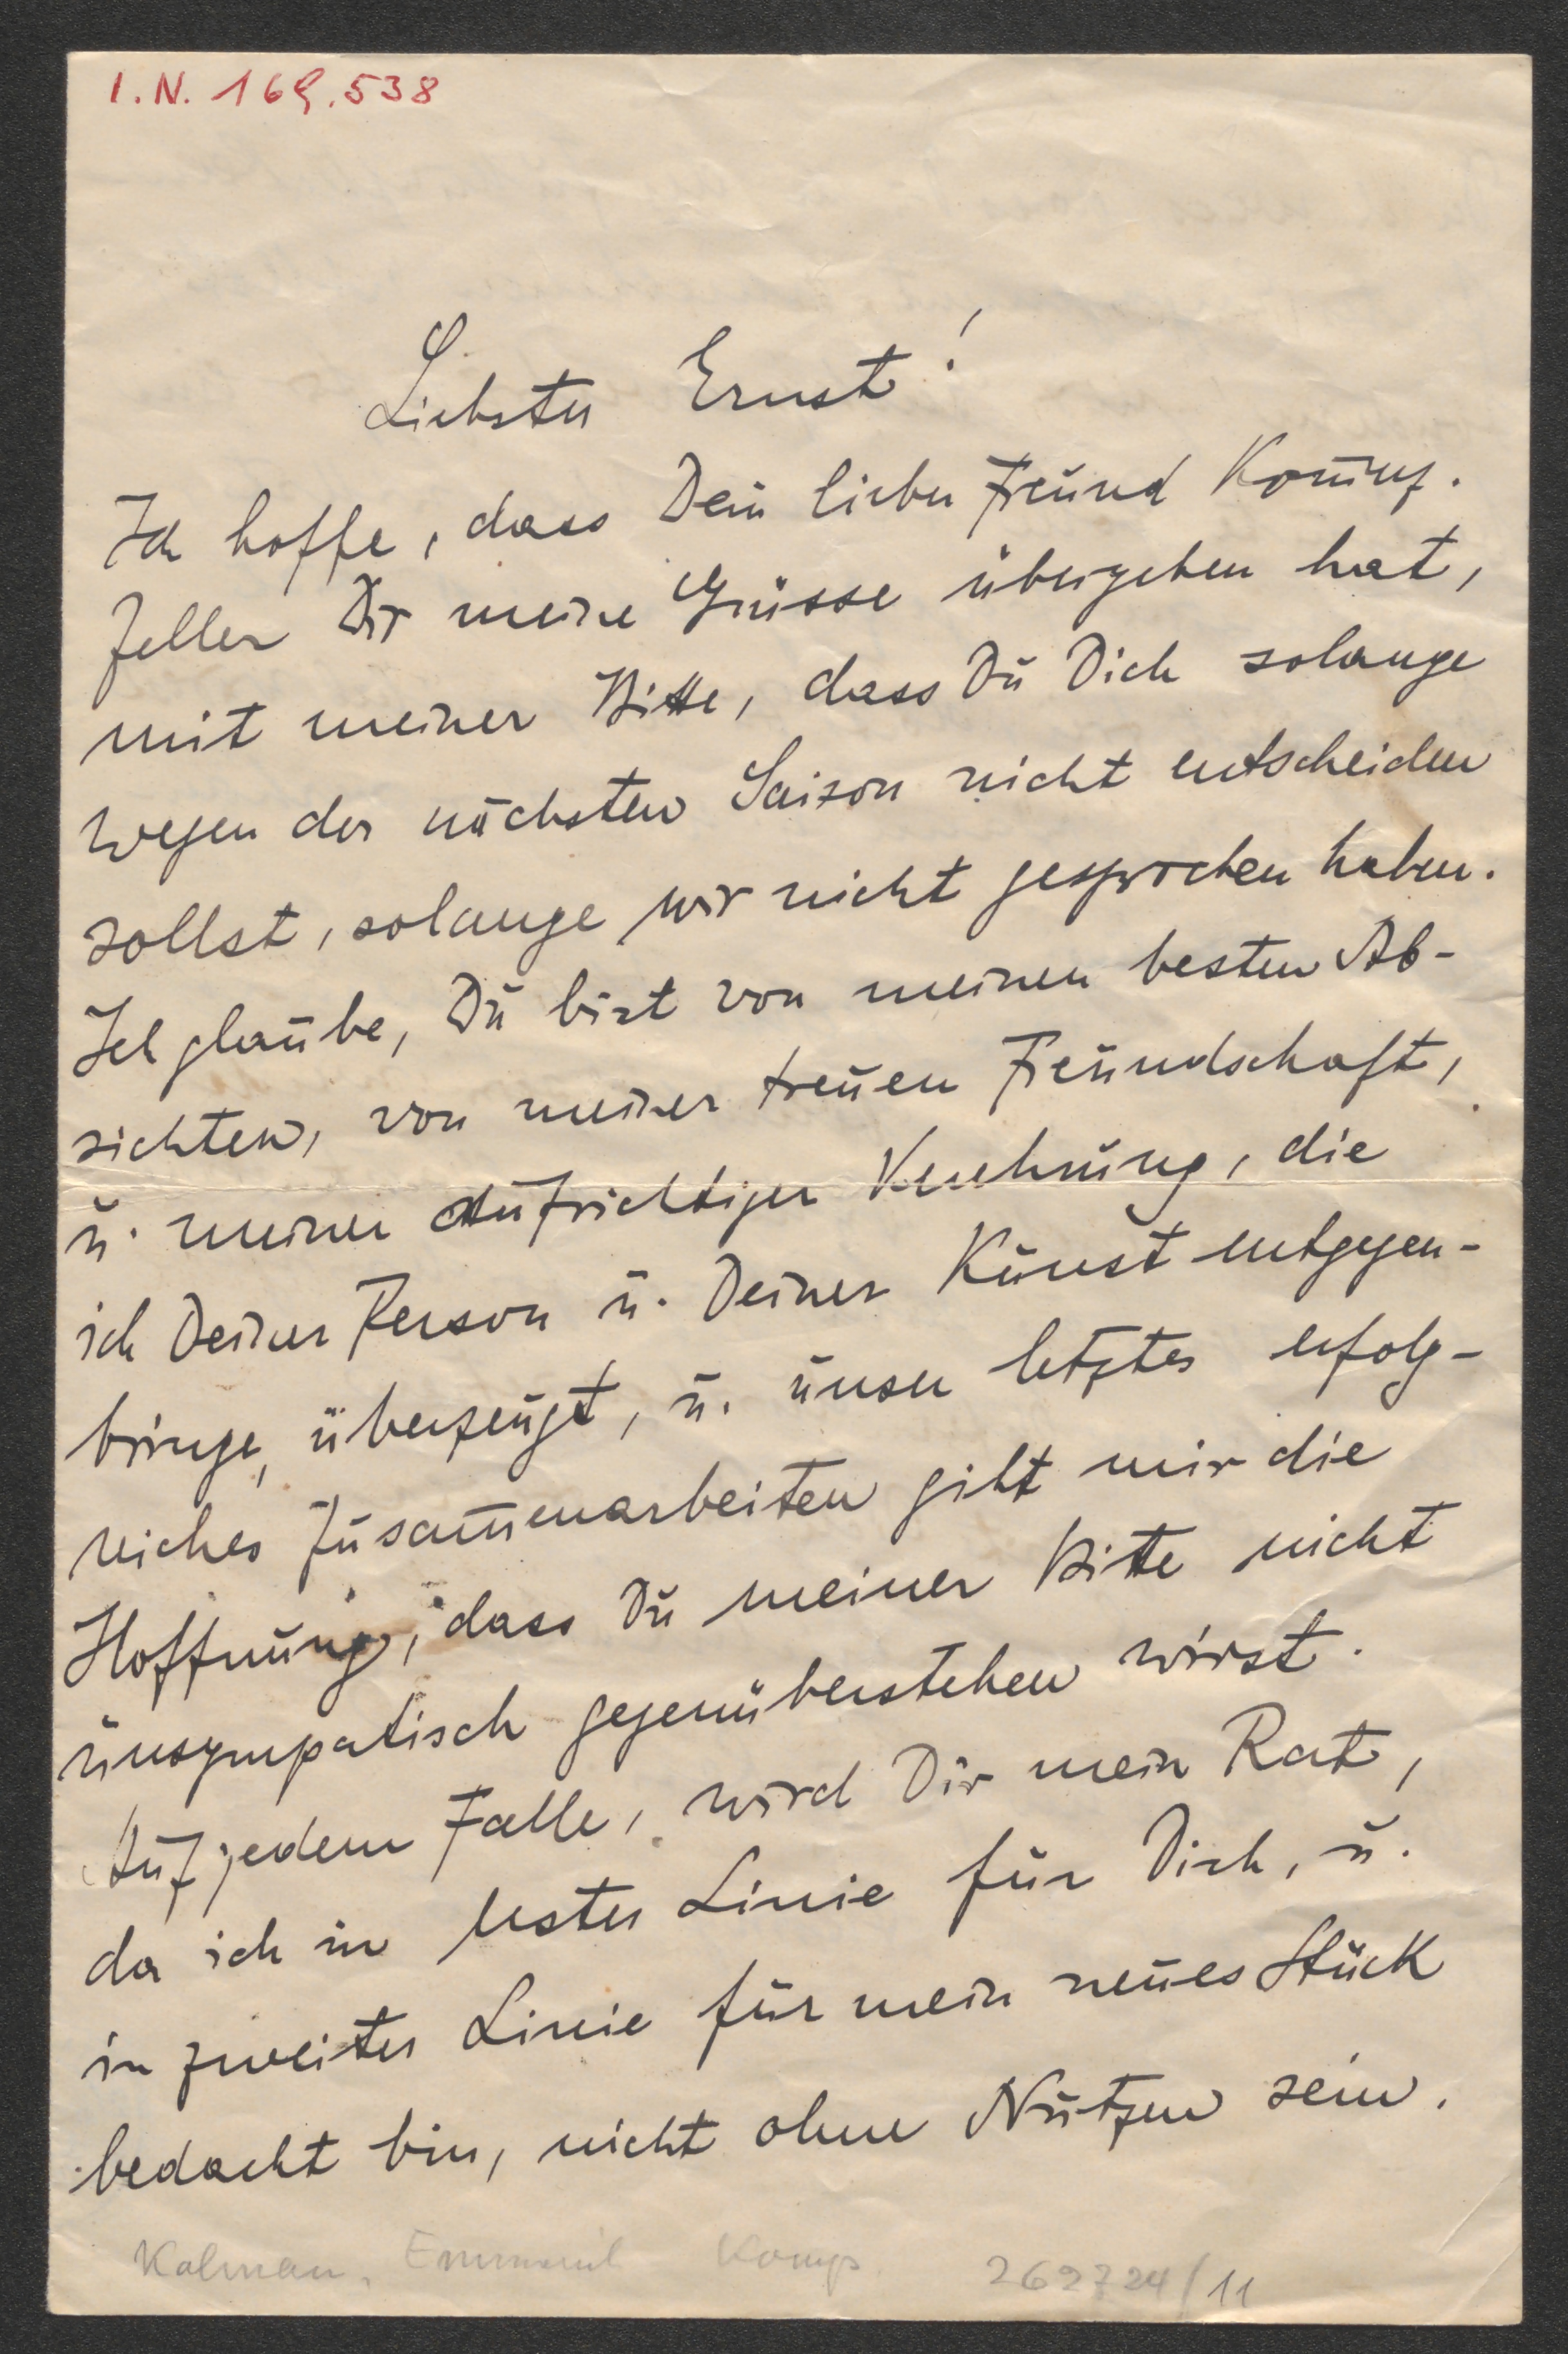 I.N. 169.538
Liebster Ernst!
Ich hoffe, dass Dein lieber Freund
Zeller Dir meine Grüsse übergeben hat,
mit meiner Bitte, dass Du Dich solange
wegen der nächsten Saison nicht entscheiden
sollst, solange wir nicht gesprochen haben.
Ich glaube, Du bist von meinen besten Ab-
sichten, von meiner treuen Freundschaft,
u. meiner Aufrichtigen Verehrung, die
ich Deiner Person u. Deiner Kunst entgegen-
bringe, überzeugt, u. unser letztes erfolg-
reiches Zusam̄enarbeiten gibt mir die
Hoffnung, dass Du meiner Bitte nicht
unsympatisch gegenüberstehen wirst.
Auf jedem Falle, wird Dir mein Rat,
da ich in erster Linie für Dich, u.
in zweiter Linie für mein neues Stück
bedacht bin, nicht ohne Nutzen sein.
Kalman, Emmerich Komp. 262724/11